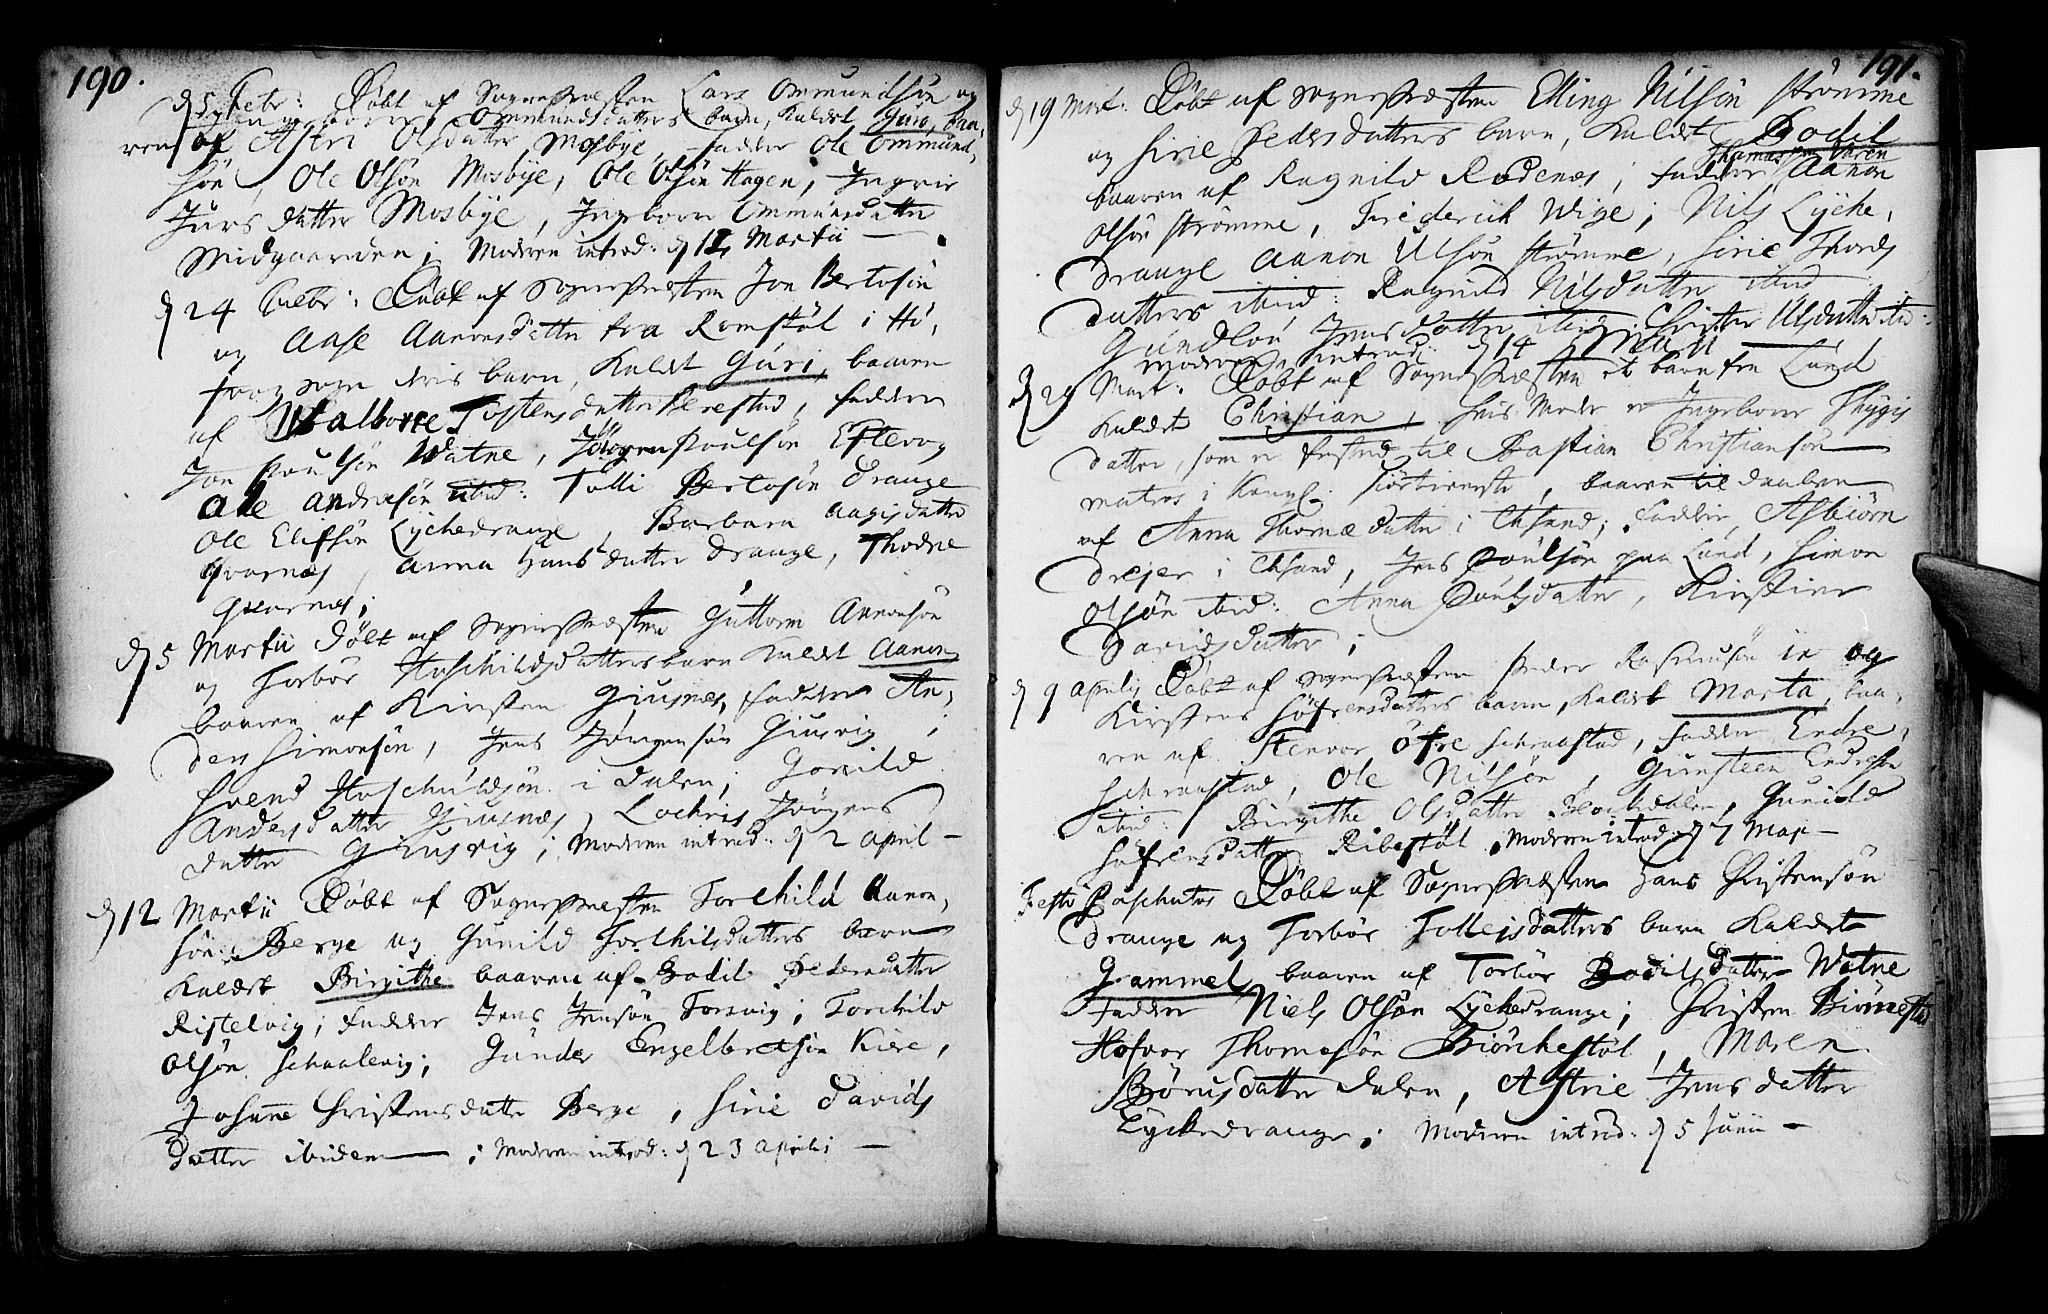 190.
d 5 Febr: Døbt af Sognepræsten Lars Ommundsøn og
Ommundsdatters barn, kaldet Guro, baa,
ren af Astri Olsdatter Mosbye, fadder Ole Ommund,
søn, Ole Olsøn Mosbye, Ole Olsøn Hagen, Ingrie
Jurs datter Mosbye, Ingeborre Ommunsdatter
Midgaarden; Moderen introd: d 12 Martii
d 24 Febr: Døbt af Sognepræsten Jon Bertosøn
og Aase Aanonsdatter fra Romstøl i Hø,
sogn deris barn, kaldet Guri, baaren
af Walborre Tostensdatter, faddere
Jon Poulsøn Watne, Jørgen Poulsøn Eftevog
Ole Andresøn ibid: Tolli Bertosøn Drange
Ole Elifsøn Lyckedrange, Barbara Aagisdatter
Qvarnes, Anna Hansdatter Drange, Thodne
Qvarnes;
d 5 Martii Døbt af Sognepræsten Guttorm Aanonsøn
og Torbor Hoschildsdatters barn kaldet Aanon
baaren af Kirsten Giusnes, faddere An,
ders Simonsøn, Jens Jørgensøn Giusvig;
Svend Hoschuldsøn i Dalen; Gonild
Andersdatter Giusnes, Lochris Jørgens
datter Giusvig; Moderen introd: d 2 April
d 12 Martii Døbt af Sognepræsten Torchild Aanon,
søn Berge og Gunild Torchilsdatters barn
kaldet Birgithe baaren af Bodil Pedersdatter
Ristelvig; fadder Jens Jensøn Torsvig; Torchild
Olsøn Schaalevig; Gunder Engelbretsøn Kiere,
Johanne Christensdatter Berge, Sirie Davids
datter ibidem; Moderen introd: d 23 Aprilis
191.
d 19 Mart: Døbt af Sognepræsten Elling Nilsøn Strømme
og Sirie Pedersdatters barn, kaldet Bodil
Thomas
baaren af Ragnild Rødenes; faddere Aanon
Olsøn Strømme, Friderich Wige; Nils Lycke,
Drange Aanon Olsøn Strømme, Sirie Thords
datters ibid: Ragnild Nilsdatter ibid
Gundlou Jensdatter ibid: Christen Olsdatter ibid:
Moderen introd: d 14 Maii
d 29 Mart: Døbt af Sognepræsten et barn fra Lund
kaldet Christian, hvis Moder er Ingeborre Thygis
datter, som er fested til Bastian Christiansøn
matros i Kongl: tieneste, baaren til daaben
af Anna Thomædatter i Chsand; Fadder, Asbiørn
Drejer i Chsand, Jens Poulsøn paa Lund, Simon
Olsøn ibid: Anna Poulsdatter, Kirstine
Davidsdatter;
d 9 Aprilis Døbt af Sognepræsten Peder Rasmusøn og
Kirstens Søfrensdatters barn, kaldet Marta, baa,
ren af Stenvor Øfre Schraastad, fadder Endre,
Schraastad, Ole Nilsøn, Gunsteen Endresøn
ibid: Birgithe Olsdatter, Gunild
Søfrensdatter Ribestøl. Moderen introd: d 7 Maj
Festo Paschatos Døbt af Sognepræsten Hans Christensøn
Drange og Torbor Tolleisdatters barn kaldet
Gammel baaren af Torbor Bodilsdatter Watne
fadder Niels Olsøn Lyckedrange; Christen Biønesta
Hofvor Thomesøn Biørckestøl, Maren
Børusdatter Dalen, Astrie Jensdatter
Lyckedrange; Moderen introd: d 5 Junii